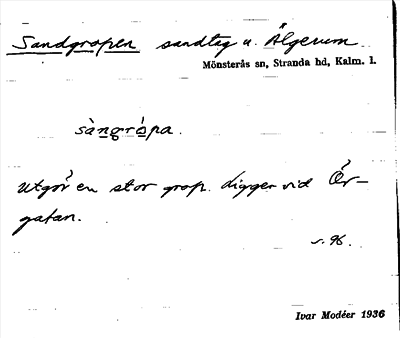 Sandgropen sandtag u. Älgerum.
Mönsterås sn, Stranda hd, Kalm. l.
sàngró̀pa.
Utgör en stor grop. Ligger vid Ör-
gatan.
s. 96.
Ivar Modéer 1936